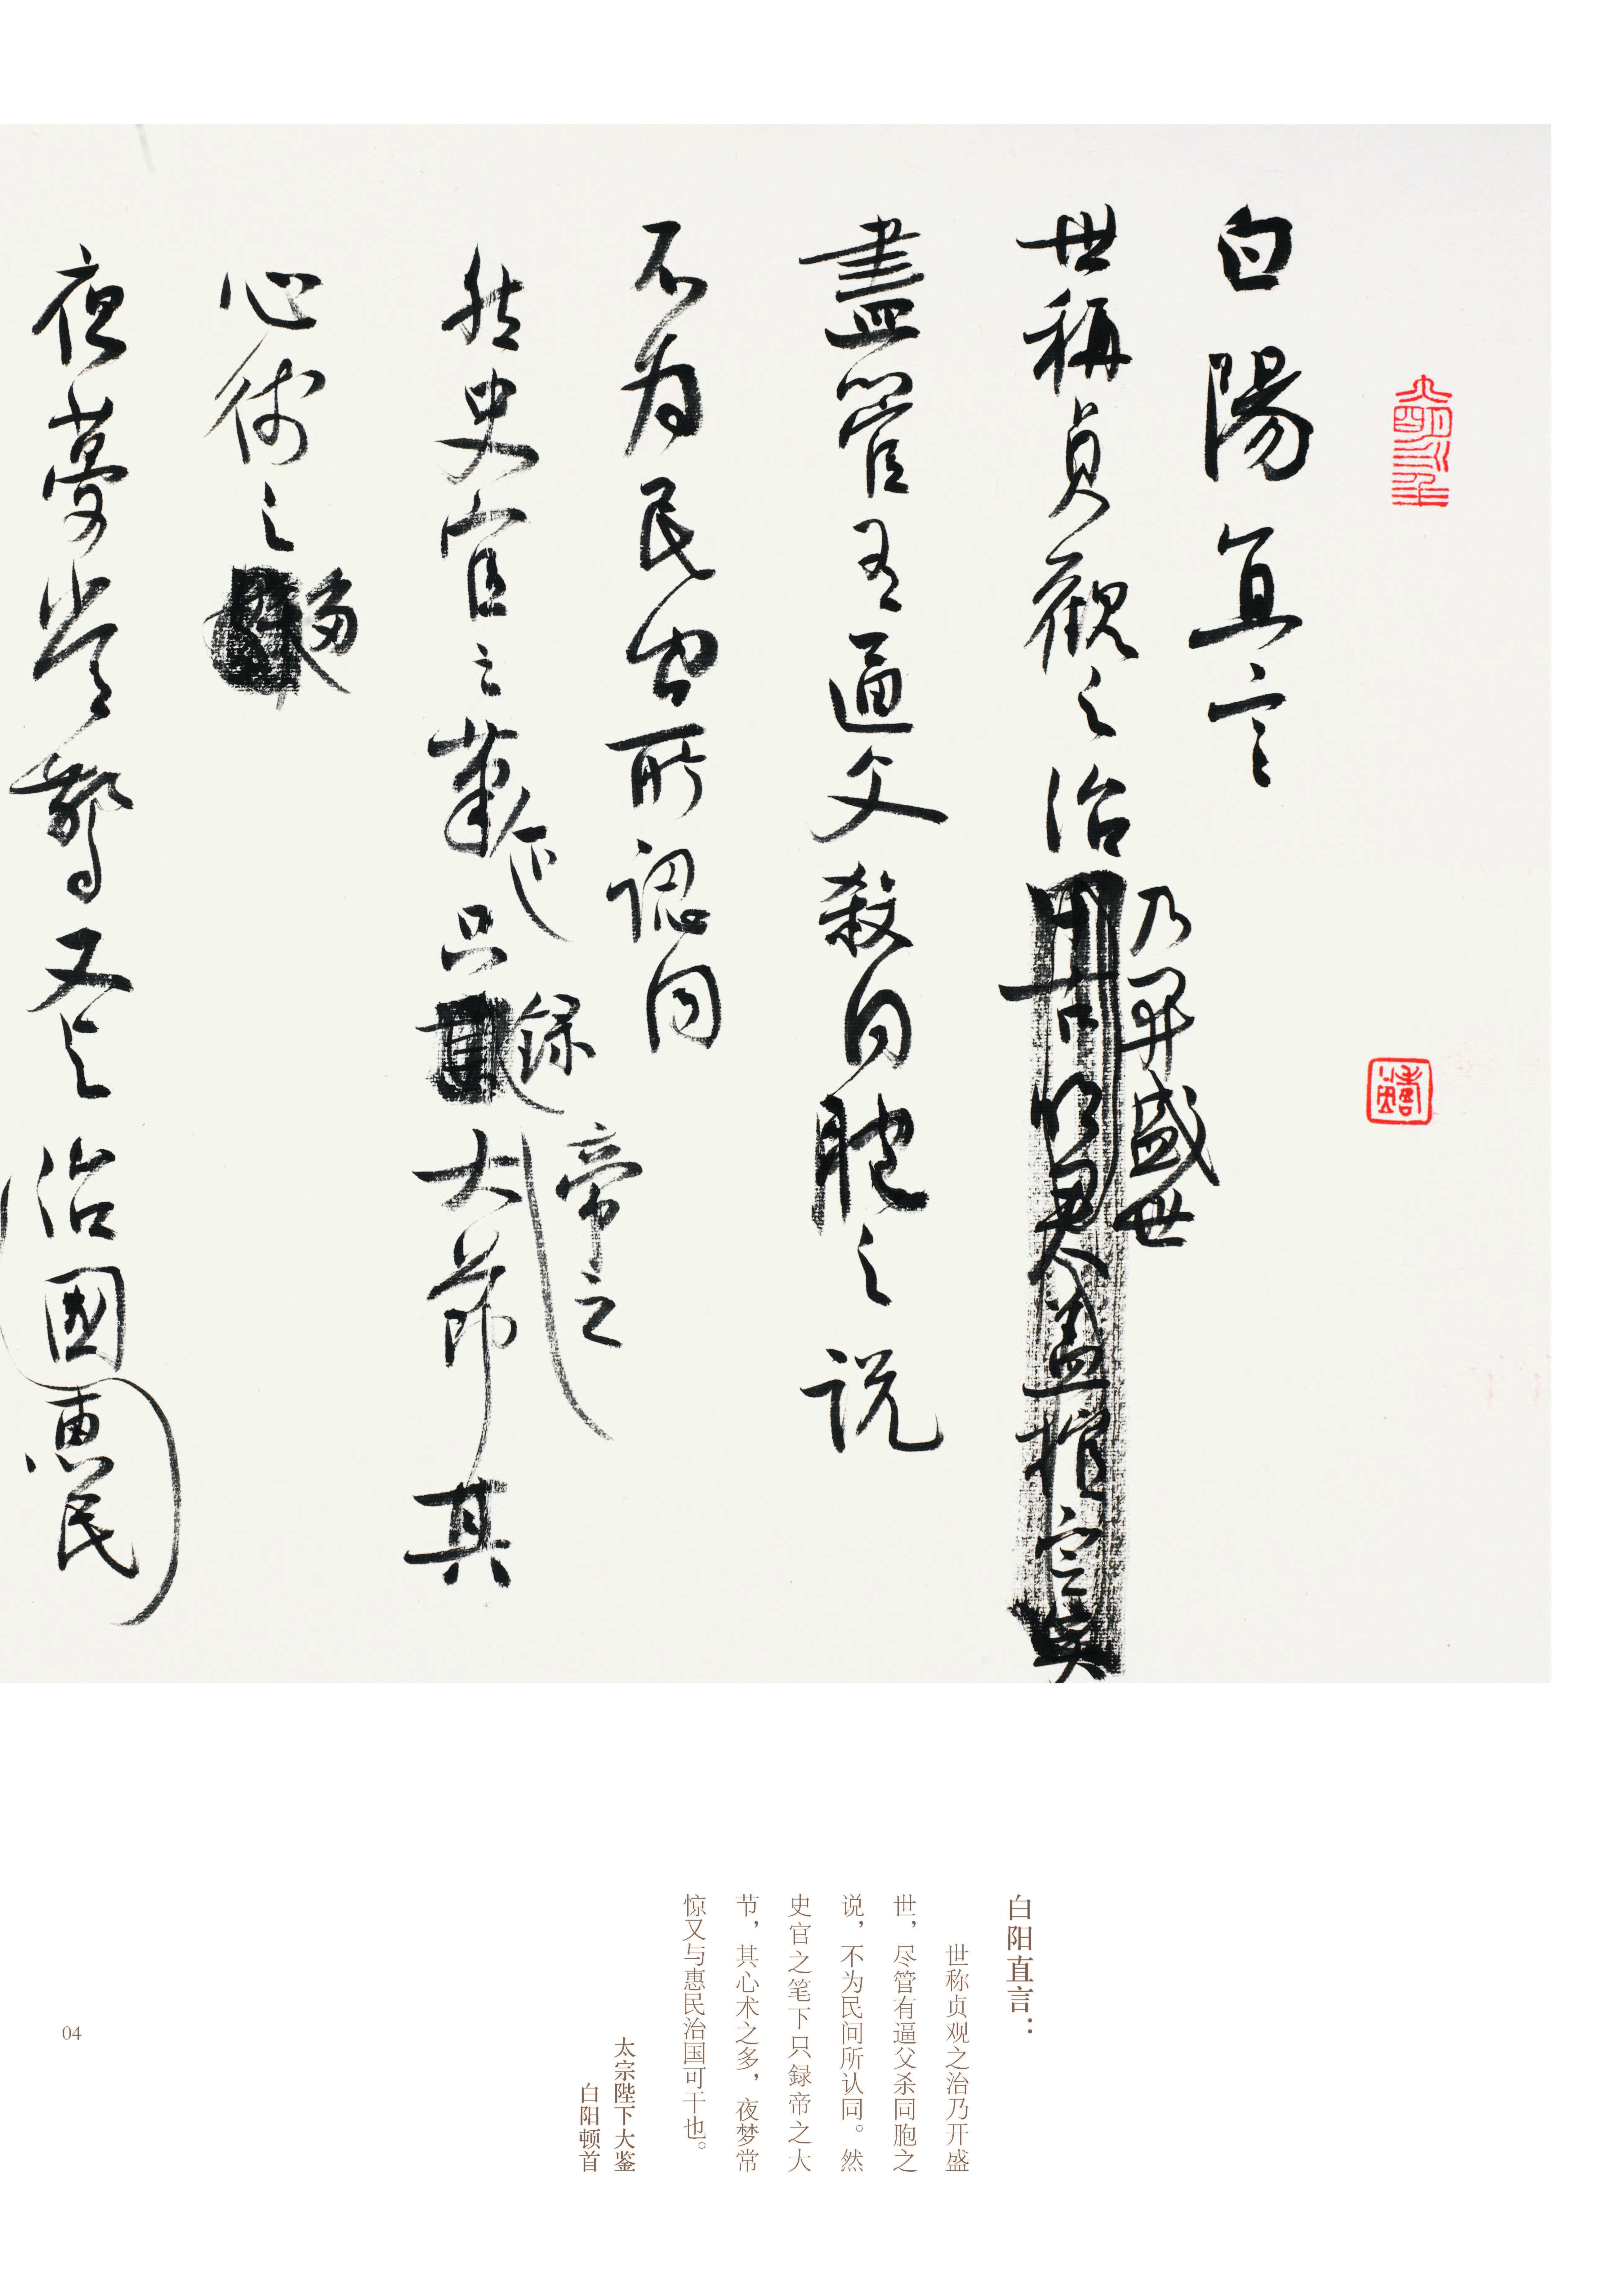 白陽直言
世稱貞觀之治乃開盛世
盡管有逼父殺同胞之說
不为民间所認同
然史官之筆下只録帝之大節其
心術之多
夜夢常驚又与治國惠民
白阳直言：
世称贞观之治乃开盛
世，尽管有逼父杀同胞之
说，不为民间所认同。然
史官之笔下只録帝之大
节，其心术之多，夜梦常
惊又与惠民治国可干也。
太宗陛下大鉴
白阳顿首
04